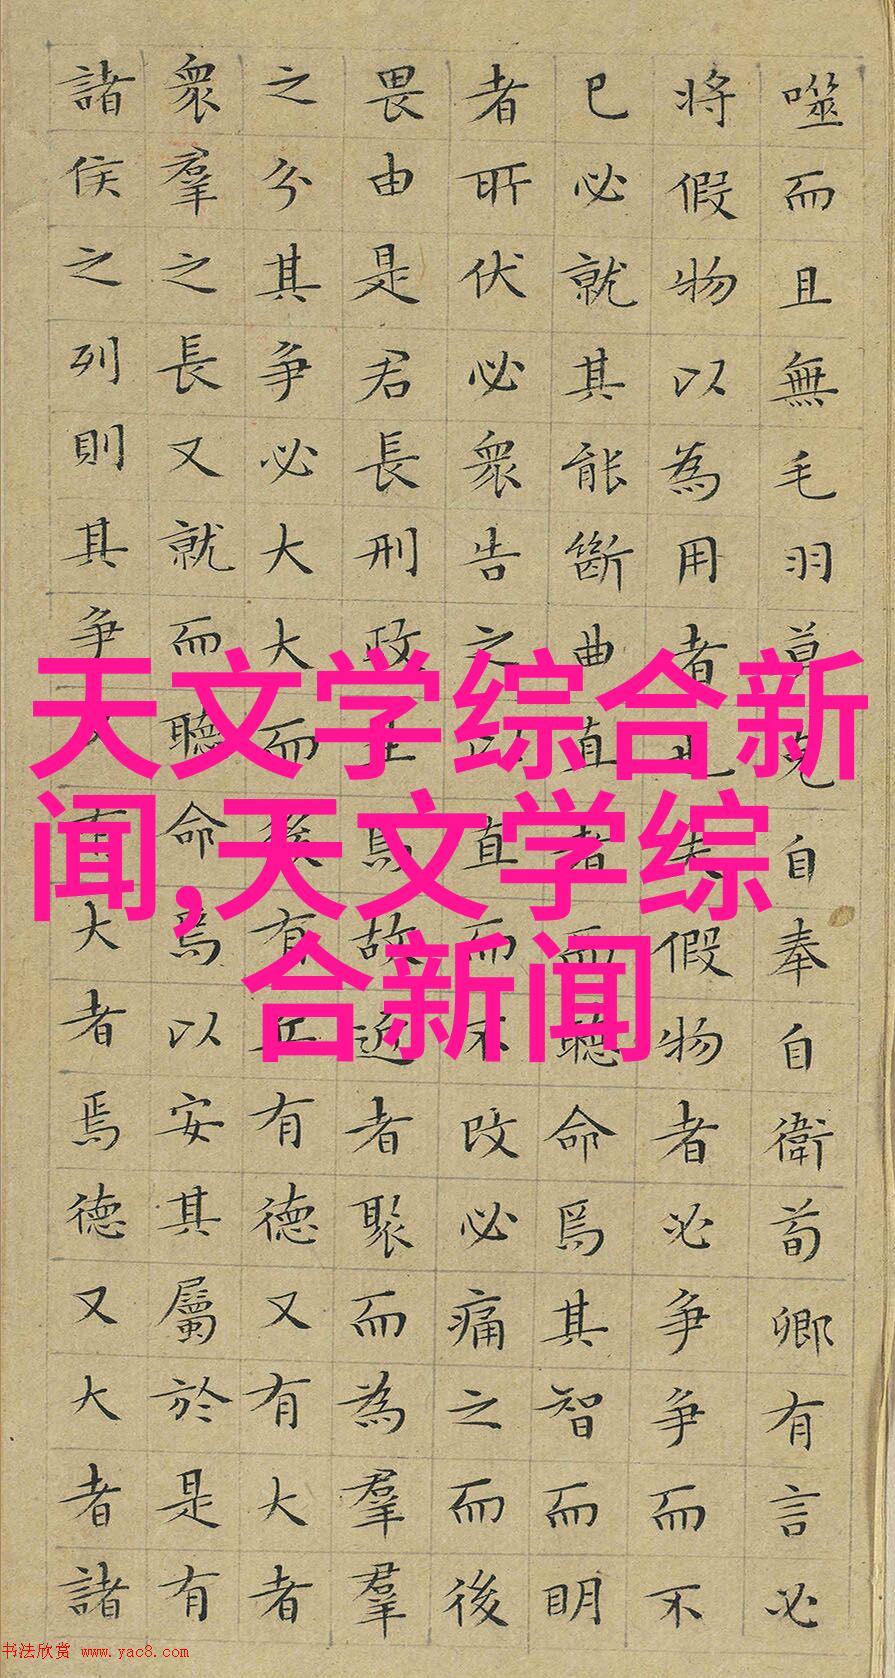 噬而且無毛羽莫克自奉自衛荀卿有言必
將假物以為用者也夫假物者必爭爭而不
已必就其能斷曲直者而聽命焉其智而明
者所伏必衆告之以直而不改必痛之而後
畏由是君長刑政生焉故近者聚而為羣羣
之分其爭必大大而後有兵有德又有大者
衆羣之長又就而聽命焉以安其屬於是有
諸侯之列則其爭又有大者焉德又大者諸
天文学综合新
闻,天文学综
合新闻
书法欣赏 www.yac8.com